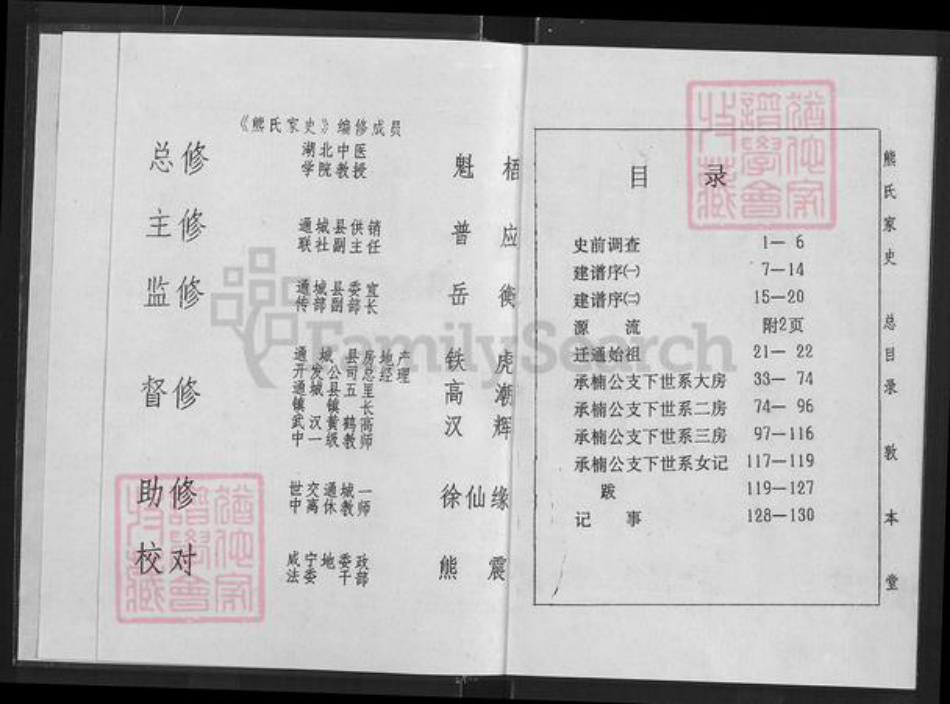 《熊氏家史》编修成员
总修 湖北中医 魁梧
学院教授
主修 通城县供销 普应
联社副主任
监修 通城县委宣 岳衡
传部副部长
督修
通城县房地产 铁虎
开发公司总经理
通城县五里 高潮
镇镇长
武汉黄鹤高 汉辉
中一级教师
助修 世交通城一 徐仙缘
中离休教师
校对 咸宁地委政 熊震
法委干部
目录
史前调查 1—6
建谱序㈠ 7—14
建谱序㈡ 15—20
源流 附2页
迁通始祖 21—22
承楠公支下世系大房 33—74
承楠公支下世系二房 74—96
承楠公支下世系三房 97—116
承楠公支下世系女记 117—119
跋 119—127
记事 128—130
熊氏家史 总目录 敦本堂
FamilySearch